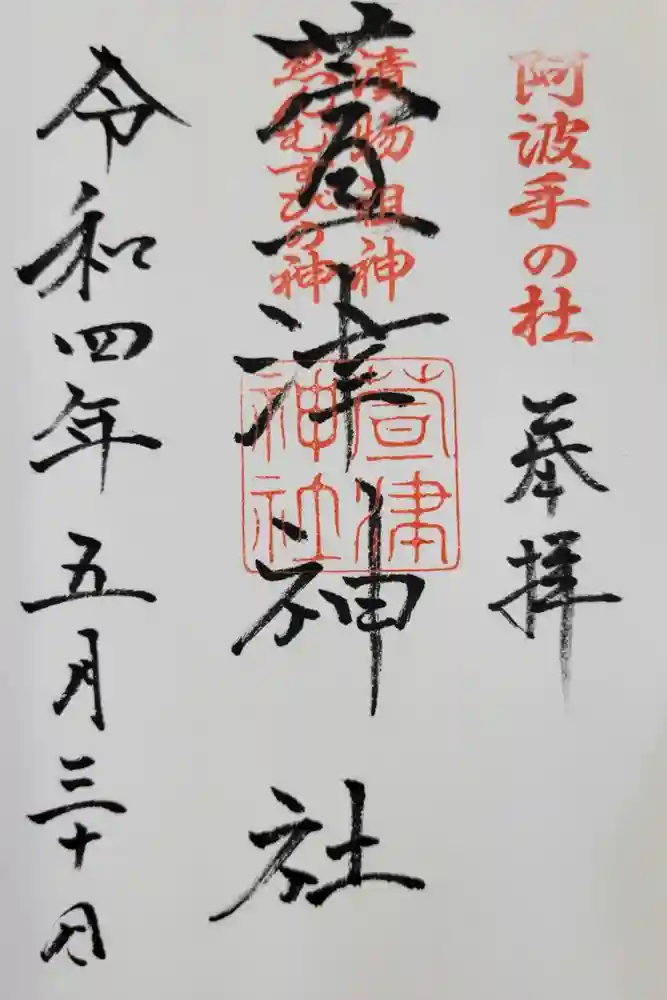 阿波手の杜
奉拝
漬物祖神
ゑんむすびの神
萱津神社
萱津
神社
令和四年五月三十日